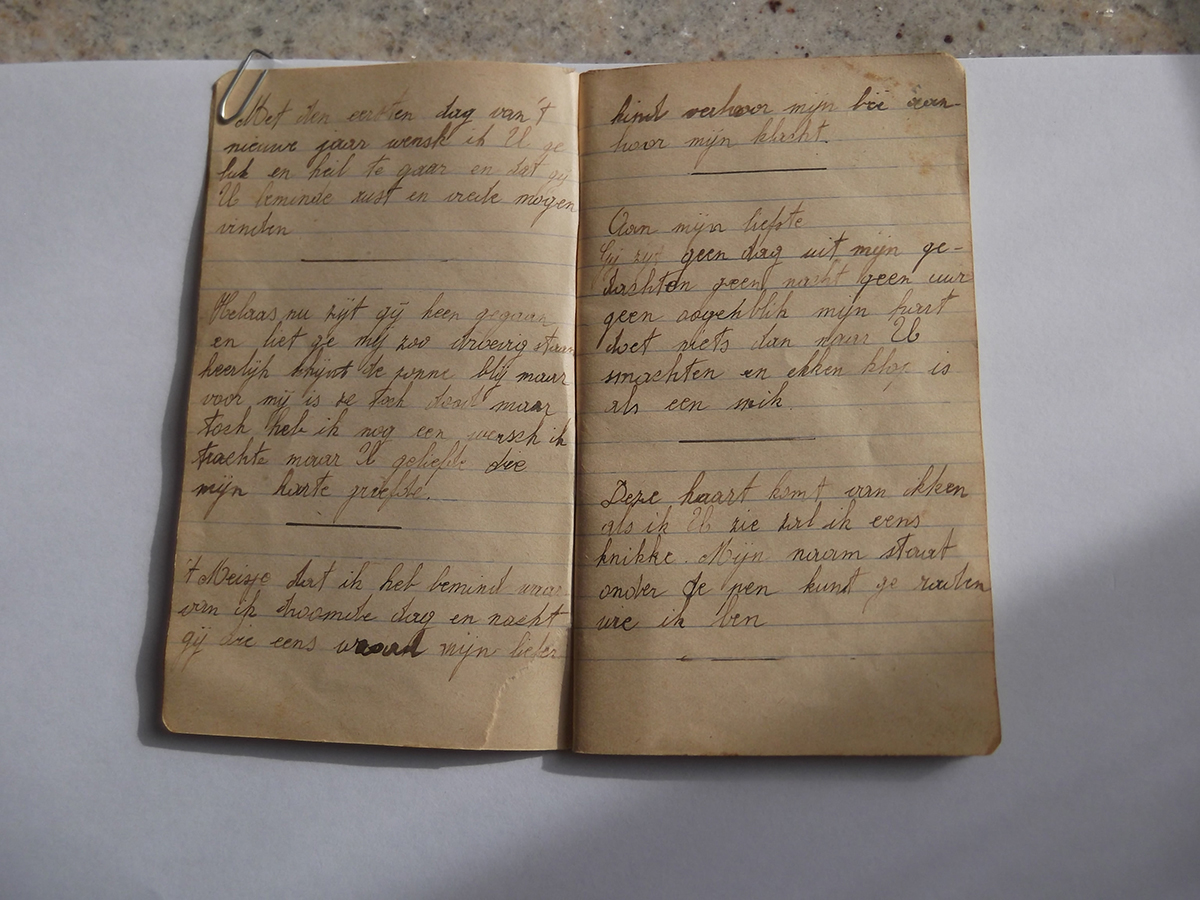 Met den eersten dag van't
nieuwe jaar wensk ik U ge
luk en heil te gaar en dat gij
U beminde rust en vrede mogen
vinden
Helaas nu zijt gij heen gegaan
en liet ge mij zoo droevig staan
heerlijk schijnt de zonne blij maar
voor mij is ze toch dood maar
toch heb ik nog een wensch ik
trachte maar U geliefde die
mijn harte griefde.
't Meisje dat ik heb bemind waar
van ik droomde dag en nacht
gij die eens waard mijn liefer
kind verhoor mijn bee aan-
hoor mijn klacht.
Aan mijn liefste
Gij zijt geen dag uit mijn ge-
dachten geen nacht geen uur
geen oogenblik mijn hart
doet niets dan naar U
smachten en ekken klop is
als een snik
Deze kaart komt van ikken
als ik U zie zal ik eens
knikke. Mijn naam staat
onder de pen kunt ge raden
wie ik ben